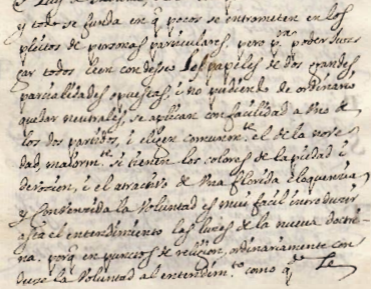 y todo se funda en q̃ pocos se entrometen en los
pleitos de personas particulares, pero pª poder juz
gar todos leen con deseo los papeles de dos grandes
parcialidades opuestas, i no pudiendo de ordinario
quedar neutrales, se aplican con facilidad a uno de
los dos partidos, i elixen comunmte. el de la nove
dad, maiormte. si tienen los colores de la piedad i
devozion, i el atractivo de una florida eloquenzia
y Convenzida la Voluntad es mui facil introduzir
asta el entendimiento las luzes de la nueva doctri
na, porq̃ en puntos de relixion, ordinariamente con
duze la Voluntad al entendimto. como q̃